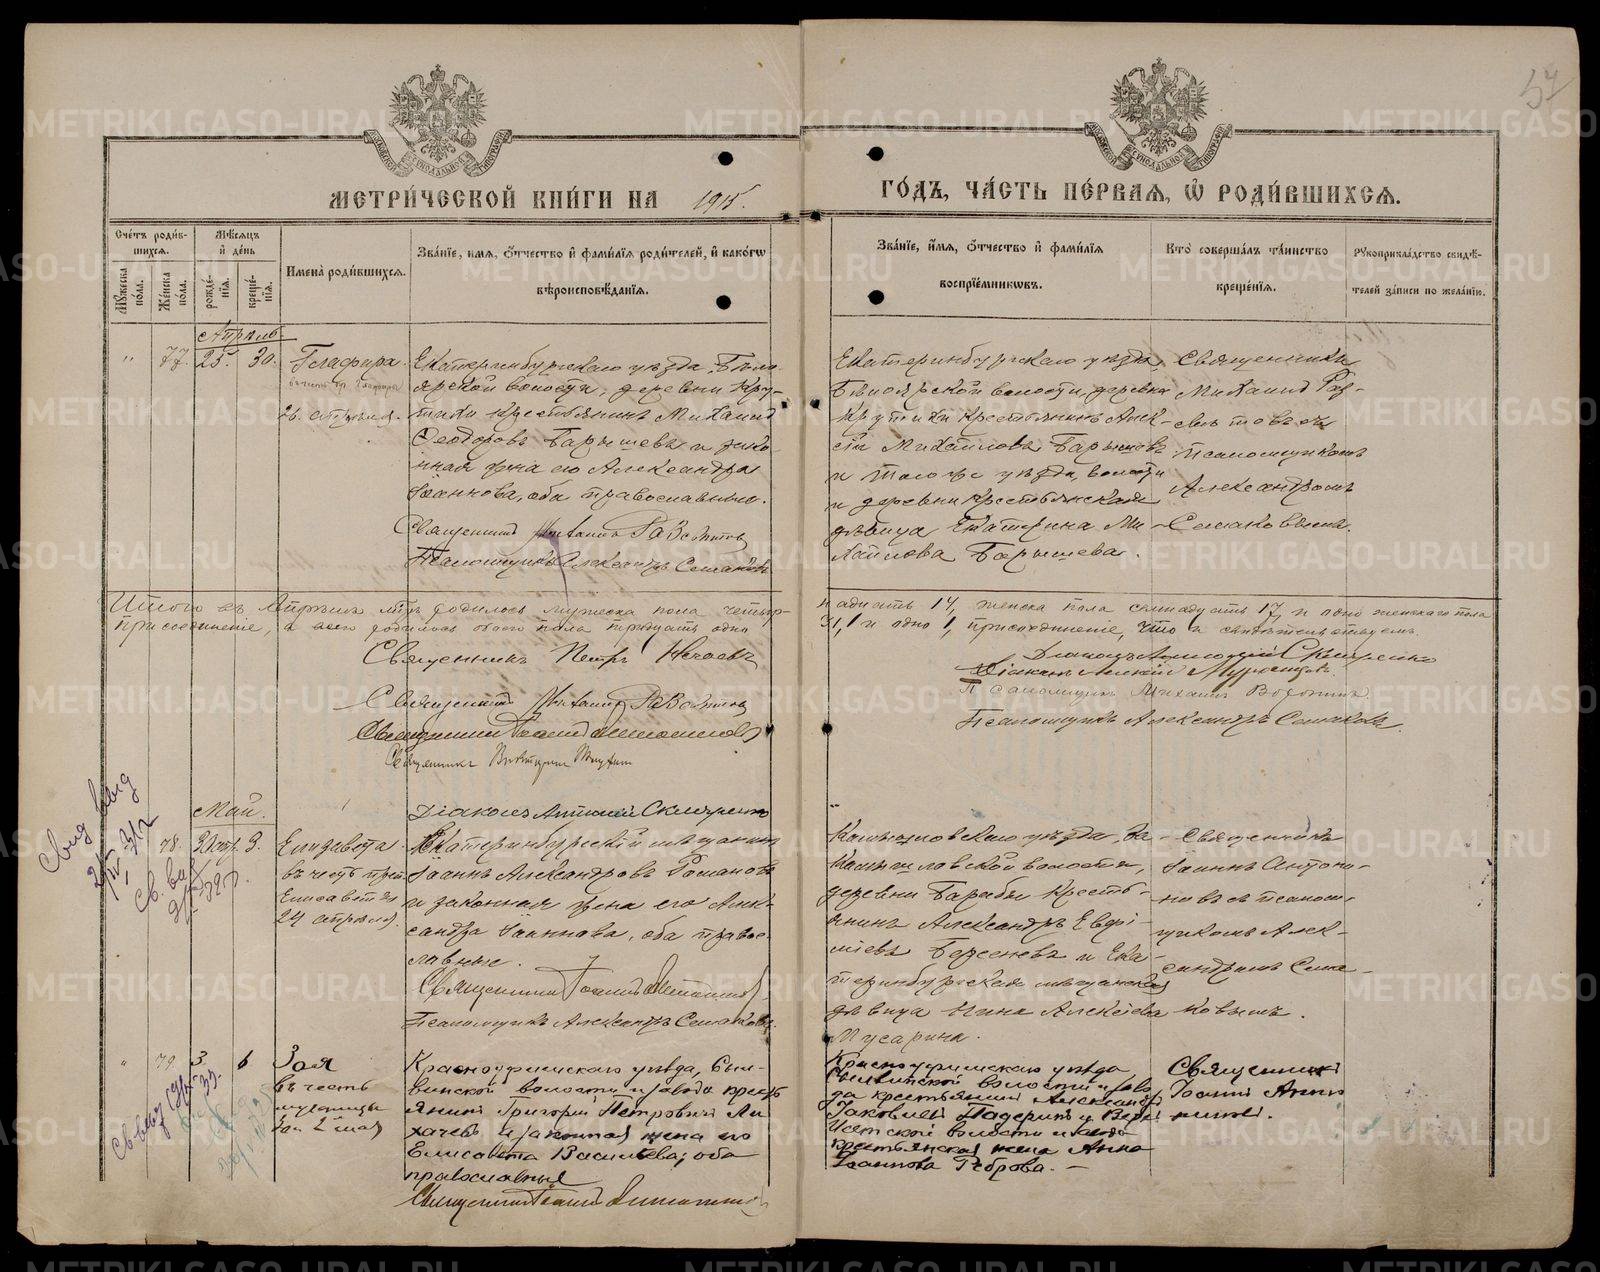 54
МЕТРИ́ЧЕСКОЙ КНИ́ГИ НА 1915.
ГО́ДЪ, ЧА́СТЬ ПЕ́РВАЯ, Ѡ РОДИ́ВШИХСЯ.
Сче́тъ роди́в-
шихся.
Мѣ́сяцъ
и де́нь
Мꙋ́жеска по́ла.
Же́нска по́ла.
рожде́-
нїя.
креще́-
нїя.
Имена̀ роди́вшихся.
Зва́нїе, имя, о́тчество и҆ фами́лїя роди́телей, и҆ како́гѡ
вѣроисповѣ́данїя.
Зва́нїе, и҆́мя, о́тчество и҆ фами́лїя
воспрїе́мникѡвъ.
Кто̀ соверша́лъ та́инство
креще́нїя.
Рꙋкоприкла́дство свидѣ́-
телей за́писи по жела́нїю.
Апрѣль
" 77. 25. 30. Глафира.
26. апрѣля.
Екатеринбургскаго уѣзда, Бѣло-
ярской волости, деревни Кру-
тихи крестьянинъ Михаилъ
Ѳеодоровъ Барышевъ и зако-
нная жена его Александра
Іоаннова, оба православные.
Священникъ Михаилъ
Псаломщикъ Александръ Семаковъ
Екатеринбургскаго уѣзда,
Бѣлоярской волости, деревни
Крутихи крестьянинъ Алек-
сѣй Михайловъ Барышевъ
и того же уѣзда, волости
и деревни крестьянская
дѣвица Екатерина Ми-
хайлова Барышева.
Священникъ
Михаилъ
съ
псаломщикомъ
Александромъ
Семаковымъ.
Итого въ Апрѣлѣ м-цѣ родилось мужеска пола четыр-
надцать 14, женска пола семнадцать 17, и одно женскаго пола
присоединеніе, а всего родилось обоего пола тридцать одно
31, и одно 1, присоединеніе, что и свидѣтельствуемъ.
Священникъ Петръ Нечаевъ
Священникъ Михаилъ
Священникъ Іоаннъ
Священникъ
Діаконъ Антоній
Діаконъ
Псаломщикъ Михаилъ
Псаломщикъ Александръ Семаковъ.
Май.
Діаконъ Антоній
78. 3. Елизавета.
въ честь преп.
Елисаветы
24 апрѣля.
Екатеринбургскій мѣщанинъ
Іоаннъ Александровъ Романовъ
и законная жена его Алек-
сандра Іоаннова, оба право-
славные.
Священникъ Іоаннъ
Псаломщикъ Александръ Семаковъ.
Камышловскаго уѣзда, За-
камышловской волости,
деревни Барабы кресть-
янинъ Александръ Евфи-
міевъ Берсеневъ и Ека-
теринбургская мѣщанская
дѣвица Нина Алексѣева
Мусарина.
Священникъ
Іоаннъ Антони-
новъ съ псалом-
щикомъ Алек-
сандромъ Сема-
ковымъ.
" 79. 3. 6 Зоя
въ честь
мученицы
Зои 2 мая
Красноуфимскаго уѣзда, Сыл-
винской волости и завода кресть
янинъ Григорій Петровичъ Ли
хачевъ и законная жена его
Елисавета Васильева; оба
православные
Священникъ Іоаннъ
Красноуфимскаго уѣзда,
Сылвинской волости и заво
да крестьянинъ Александръ
Іаковлевъ Падеринъ и Верх-
Исетской волости и завода
крестьянская жена Анна
Іоаннова Реброва. —
Священникъ
Іоаннъ Анто
ниновъ.